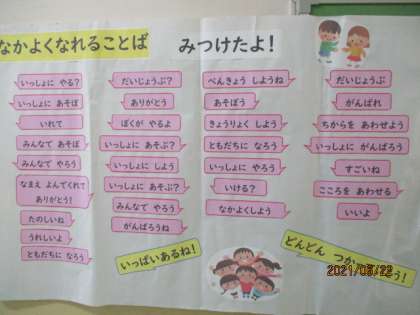 なかよくなれることば　みつけたよ！
いっしょに やる？
いっしょに あそぼ
いれて
みんなで あそぼ
みんなで やろう
なまえ よんでくれて
ありがとう！
たのしいね
うれしいよ
ともだちに なろう
だいじょうぶ？
ありがとう
ぼくが やるよ
いっしょに あそぶ？
いっしょに しよう
いっしょに あそぶ？
みんなで やろう
がんばろうね
いっぱいあるね！
べんきょう しようね
あそぼう
きょうりょく しよう
ともだちに なろう
いっしょに やろう
いける？
なかよくしよう
だいじょうぶ
がんばれ
ちからを あわせよう
いっしょに がんばろう
すごいね
こころを あわせる
いいよ
どんどん つか
う！
2021/06/22